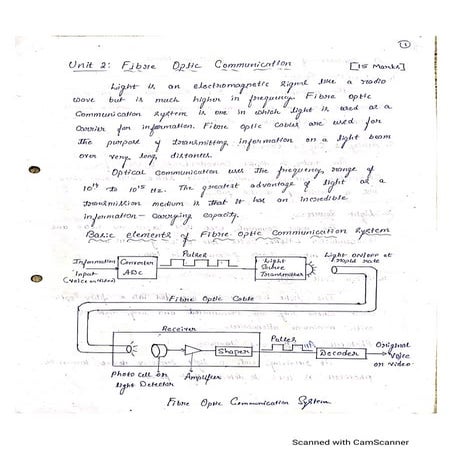 1
Unit 2: Fibre Optic Communication [15 Marks]
Light is an electromagnetic signal like a radio
wave but is much higher in frequency. Fibre optic
Communication System is one in which light is used as a
Carrier for information. Fibre optic cables are used for
the purpose of transmitting information on a light beam
over very long distances.
Optical Communication uses the frequency range of
to 10¹⁵ Hz. The greatest advantage of light as a
transmission medium is that it has an incredible
information-carrying capacity.
Basic elements of Fibre Optic Communication System
Information
Input
(Voice or Video)
Converter
ADC
Pulses
Light
Source
Transmitter
Light on/off at
rapid rate
Fibre Optic Cable
Receiver
Shaper
Pulses
Decoder
Original
Voice
or Video
Photo Cell or
Light Detector
Amplifier
Fibre Optic Communication System
Scanned with CamScanner